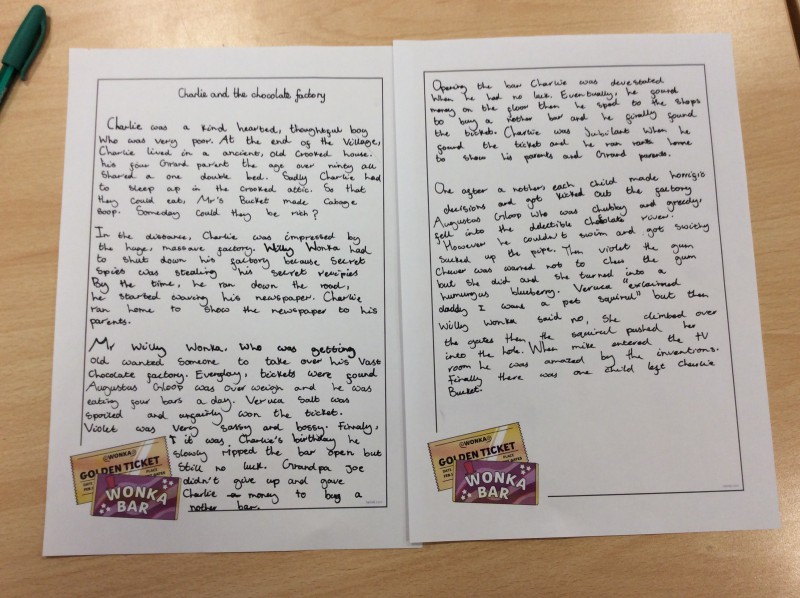 Charlie and the chocolate factory
Charlie was a kind hearted, thoughtful boy
who was very poor. At the end of the Village,
Charlie lived in a ancient, old crooked house.
his four Grand parent the age over niney all
Shared a one double bed. Sadly Charlie had
to sleep ap in the crooked attic. So that
they could eat, Mr's Bucket made Cabage
Soop. Someday could they be rich?
In the disstance, Charlie was impressed by
the huge, massave factory. Willy Wonka had
to shut down his factory because secret
Spies was stealing his secret recipies
By the time, he ran down the road,
he started waving his newspaper. Charlie
ran home to show the newspaper to his
parents.
Mr Willy Wonka, who was getting
Old wanted Someone to take over his Vast
Chocolate factory. Everyday, tickets were found
Augustus Gloop was over weigh and he was
eating four bars a day. Veruca Salt was
spoiled and unfairly won the ticket.
Violet was very sassy and bossy. Finaly,
it was Charlie's birthday he
slowly ripped the bar open but
Still no luck. Grandpa Joe
didn't give up and gave
Charlie money to buy a
nother bar.
WONKA
GOLDEN TICKET
WONKA
BAR
Opening the bar Charlie was devestated
when he had no luck. Eventually, he found
money on the floor then he sped to the shops
to buy a nother bar and he finally found
the ticket. Charlie was Jubilant when he
found the ticket and he ran home
to show his parents and Grand parents.
One after a nother, each child made horrific
decisions and got kicked out the factory
Augustus Gloop who was chubby and greedy,
fell into the delectible chocolate river.
However he couldn't swim and got swiftly
Sucked up the pipe. Then violet the gum
Chewer was warned not to chew the gum
but she did and she turned into a
humungus blueberry. Veruca "exclaimed
daddy I want a pet squirul" but then
Willy Wonka said no, She climbed over
the gates then the squirul pushed her
into the hole. When mike entered the TV
room he was amazed by the inventions.
Finally there was one child left Charlie
Bucket.
WONKA
GOLDEN TICKET
WONKA
BAR